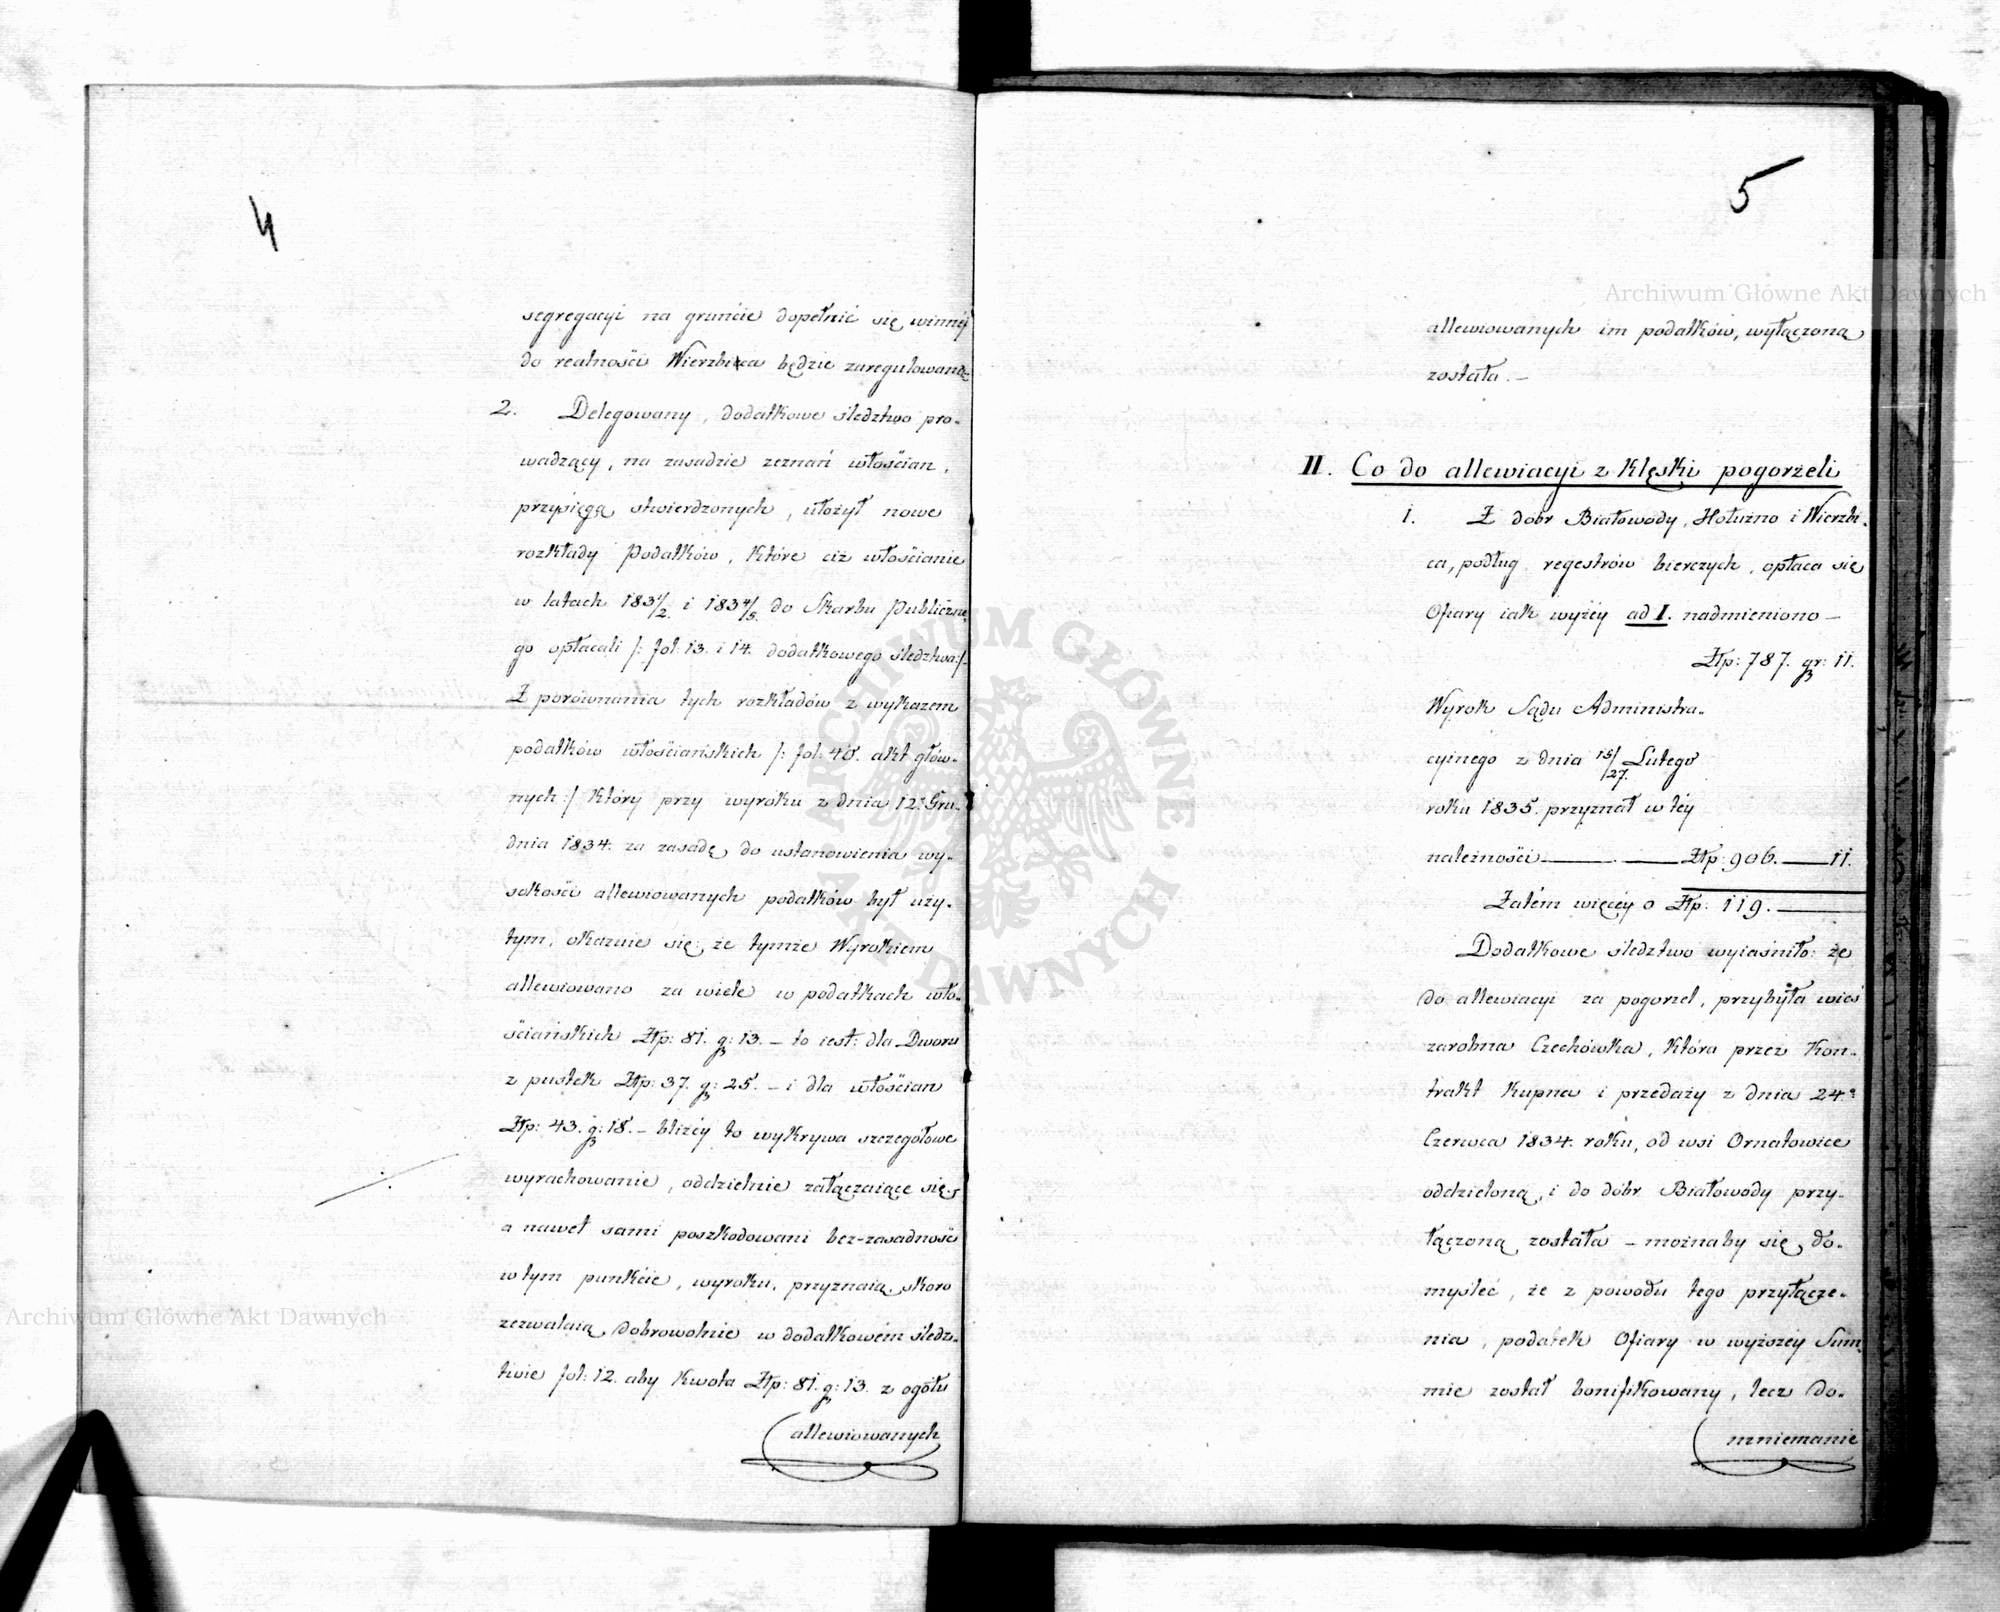 4
segregacyi na gruńcie dopełnić się winnéj
do realności Wierzbica będzie zaregulowaną
2. Delegowany, dodatkowe śledztwo pro„
wadzący, na zasadzie zeznań włościan,
przysięgą stwierdzonych, ułożył nowe
rozkłady Podatków, które ciż włościanie
w latach 1831/2. i 1834/5. do Skarbu Publiczne„
go opłacali /: fol: 13. i 14. dodatkowego śledztwa:/.
Z porównania tych rozkładów z wykazem
podatków włościańskich /: fol: 40. akt głów„
nych:/ który przy wyroku z dnia 12º Gru„
dnia 1834. za zasadę do ustanowienia wy„
sokości allewiowanych podatków był uży„
tym, okazuie się: że tymże Wyrokiem
allewiowano za wiele w podatkach wło„
ściańskich Złp: 81. gr: 13. – to iest: dla Dworu
z pustek Złp: 37. gr: 25. – i dla włościan
Złp: 43. gr: 18. – bliżéy to wykrywa szczegółowe
wyrachowanie, oddzielnie załączaiące się,
a nawet sami poszkodowani bez-zasadność
w tym punkcie, wyroku, przyznaią, skoro
zezwalaią dobrowolnie w dodatkowém śledz„
twie fol: 12. aby kwota Złp: 81. gr: 13. z ogółu
allewiowanych
5
allewiowanych im podatków, wyłączoną
została. –
II. Co do allewiacyi z klęski pogorzeli
1. Z dóbr Białowody, Hołużno i Wierzbi„
ca, podług regestrów bierczych, opłaca się
Ofiary iak wyżéy ad I. nadmieniono –
Złp: 787. gr: 11.
Wyrok Sądu Administra„
cyinego z dnia 15/27. Lutego
roku 1835. przyznał w téy
należności — — Złp: 906. — 11.
Zatém więcéy o Złp: 119. —
Dodatkowe śledztwo wyiaśniło: że
do allewiacyi za pogorzel, przybyła wieś
zarobna Czechówka, która przez Kon„
trakt kupna i przedaży z dnia 24º
Czerwca 1834. roku, od wsi Ornatowice
oddzieloną, i do dóbr Białowody przy„
łączoną została – możnaby się do„
myśleć, że z powodu tego przyłącze„
nia, podatek Ofiary w wyższéy Sum„
mie został bonifikowany, lecz do„
mniemanie
Archiwum Główne Akt Dawnych
Archiwum Główne Akt Dawnych
ARCHIWUM GŁÓWNE AKT DAWNYCH